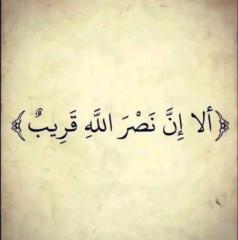 ﴿ألا إِنَّ نَصْرَ اللَّهِ قَرِيبٌ﴾